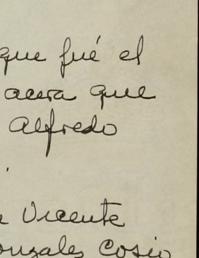 que fué el
acera que
Alfredo
Vicente
onzales Cosio